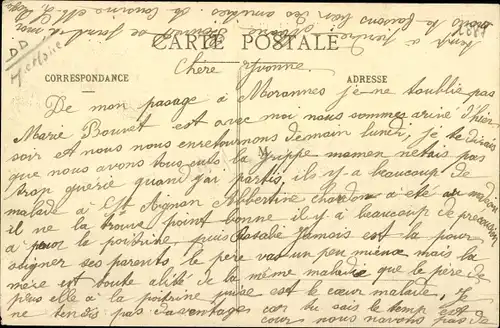 CARTE POSTALE
CORRESPONDANCE
ADRESSE
Chère Yvonne
De mon pasage à Morannes je ne toublie pas
Marie Bouvet est avec moi nous sommes arivé d'hier
soir et nous nous enretournons demain lundi, je te dirais
que nous avons tous eu la grippe maman netais pas
trop guérie quand j'ai partis, ils y a beaucoup de
malade à St Aignan Albertine chardon a été au médecin
il ne la trouve point bonne il y à beaucoup de precaution
a pour la poitrine, puis Rosalie Jamois est la pour
soigner ses parents, le père vas un peu mieux mais la
mère est toute alité de la même maladie que le père de
plus elle à la poitrine prise est le cœur malade, Je
ne tends pas davantages car tu sais le temp est
cour nous navons pas de